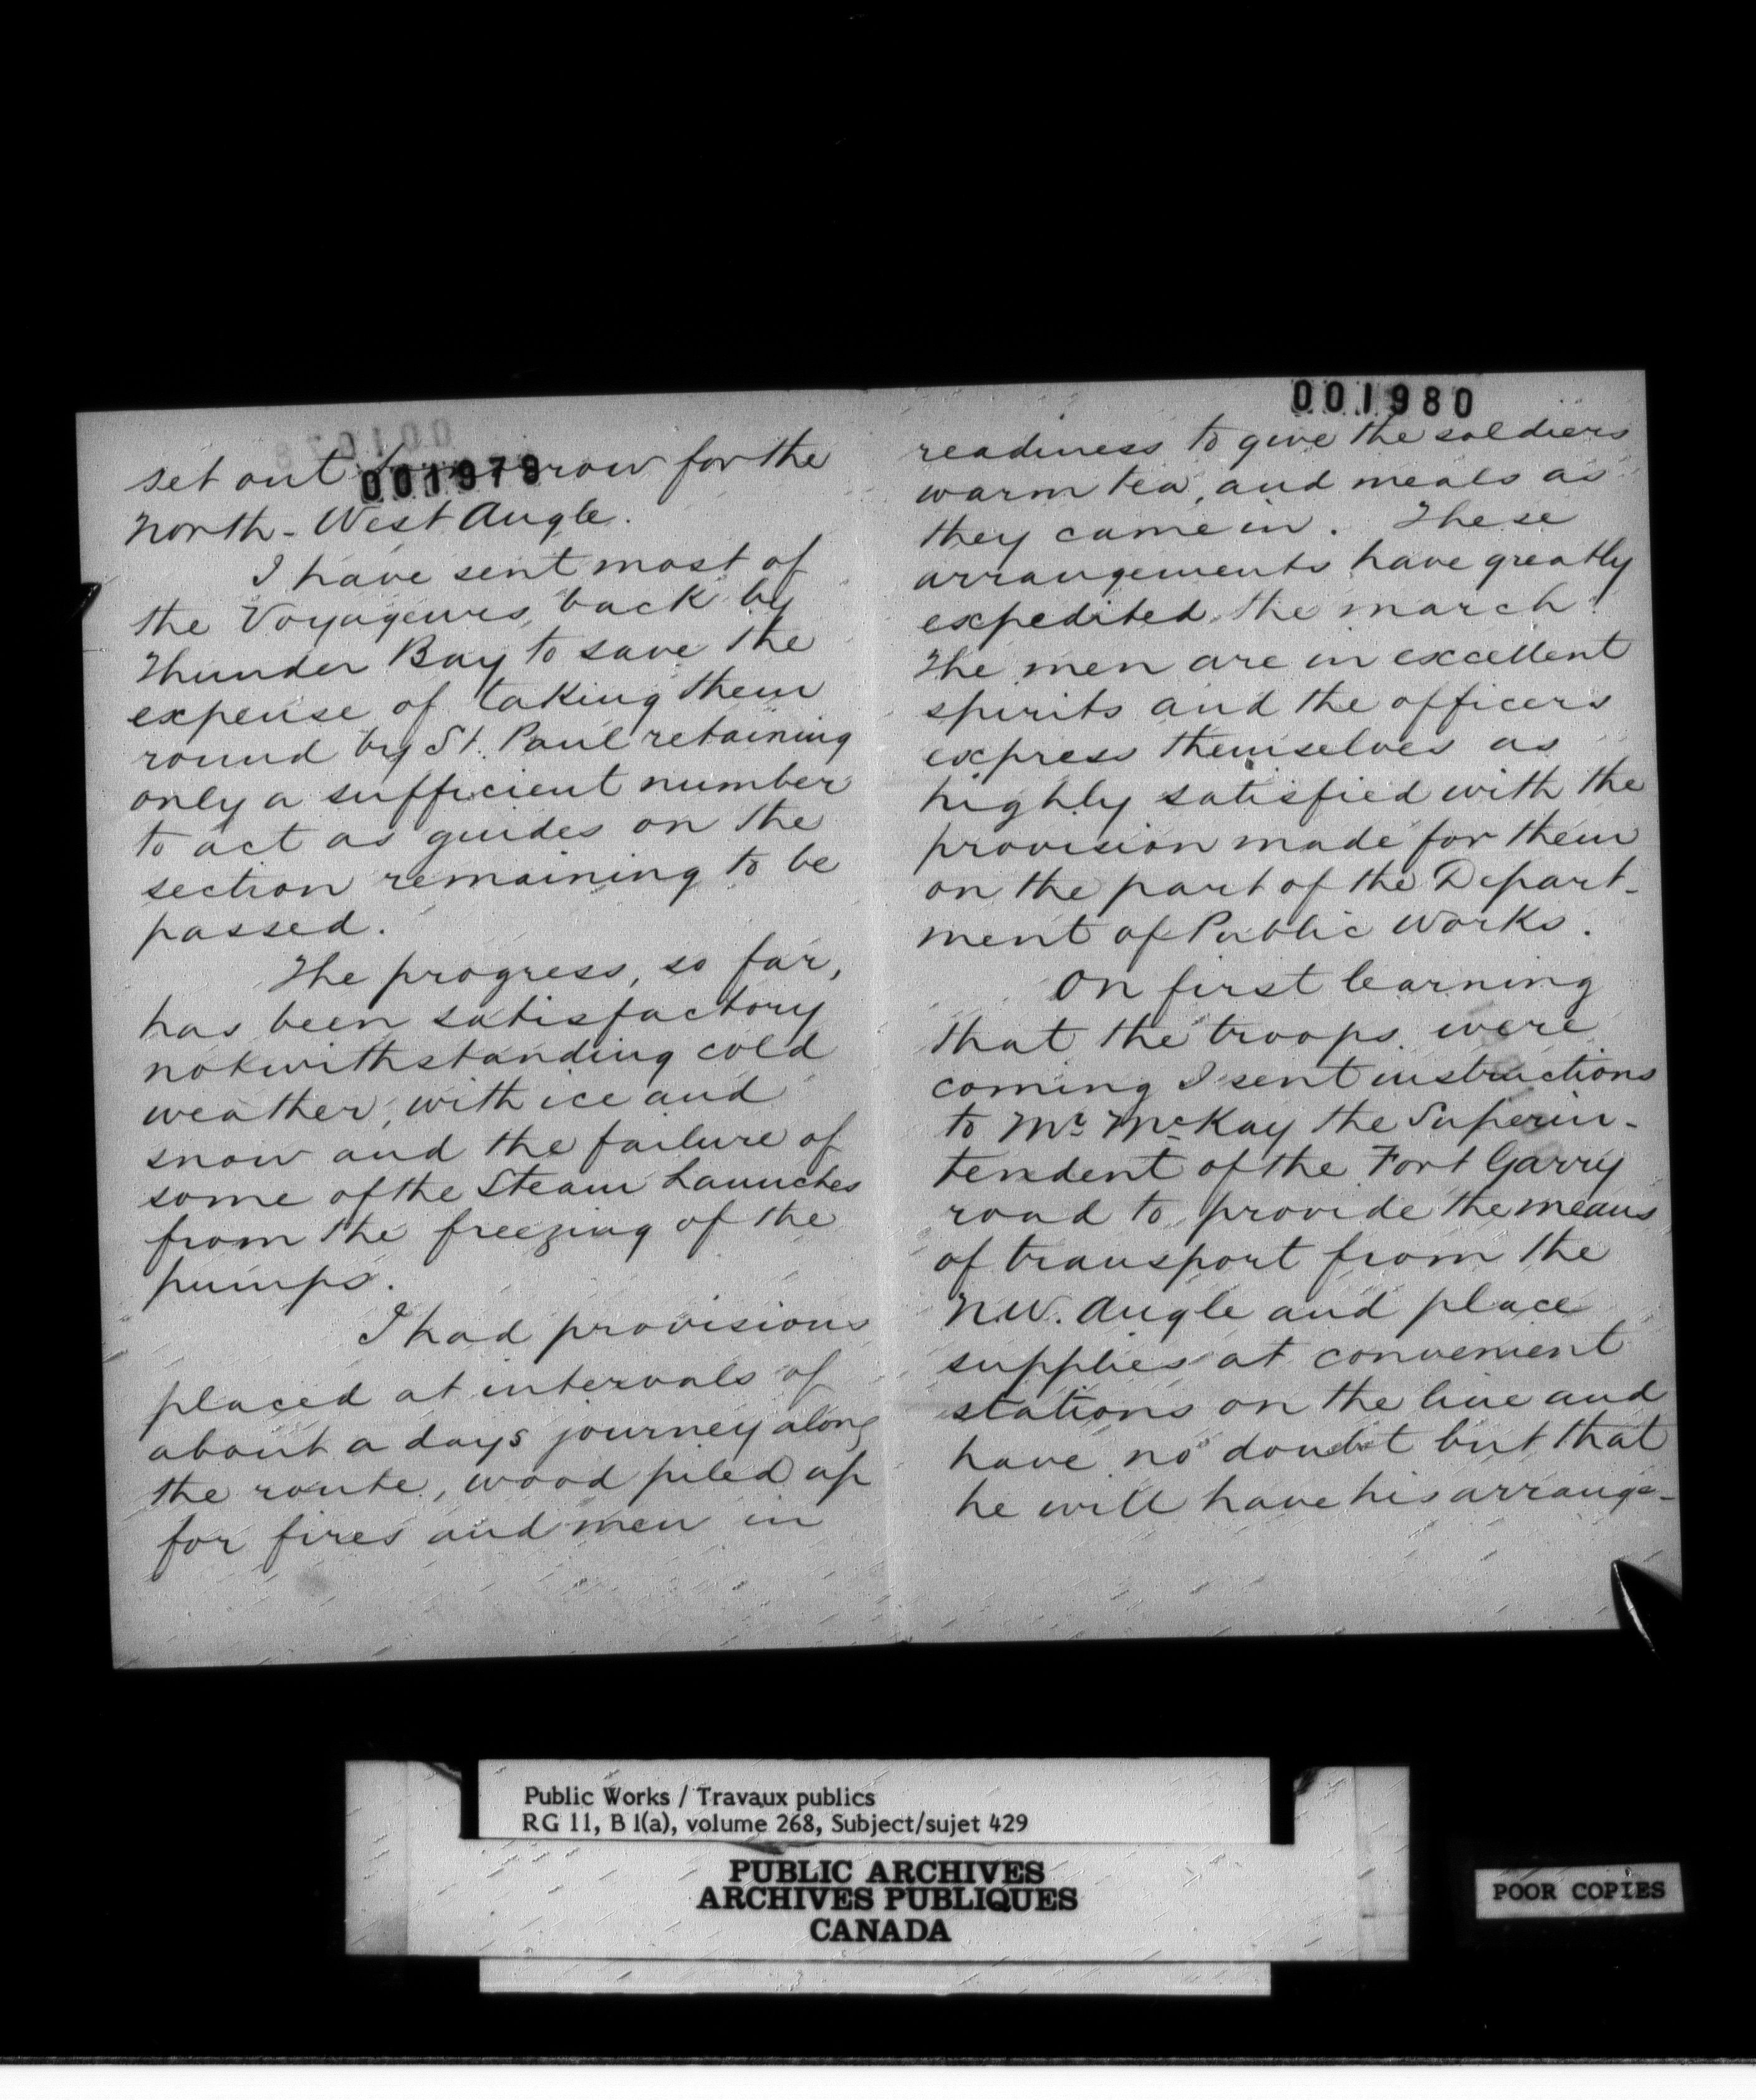 001979
set out tomorrow for the
North-West Angle.
I have sent most of
the Voyageurs, back by
Thunder Bay to save the
expense of taking them
round by St. Paul retaining
only a sufficient number
to act as guides on the
section remaining to be
passed.
The progress, so far,
has been satisfactory
notwithstanding cold
weather, with ice and
snow and the failure of
some of the Steam Launches
from the freezing of the
pumps.
I had provisions
placed at intervals of
about a days journey along
the route, wood piled up
for fires and men in
001980
readiness to give the soldiers
warm tea, and meals as
they came in. These
arrangements have greatly
expedited the march.
The men are in excellent
spirits and the officers
express themselves as
highly satisfied with the
provision made for them
on the part of the Depart-
ment of Public Works.
On first learning
that the troops were
coming I sent instructions
to Mr. McKay the Superin-
tendent of the Fort Garry
road to provide the means
of transport from the
N.W. Angle and place
supplies at convenient
stations on the line and
have no doubt but that
he will have his arrange-
Public Works / Travaux publics
RG 11, B 1(a), volume 268, Subject/sujet 429
PUBLIC ARCHIVES
ARCHIVES PUBLIQUES
CANADA
POOR COPIES